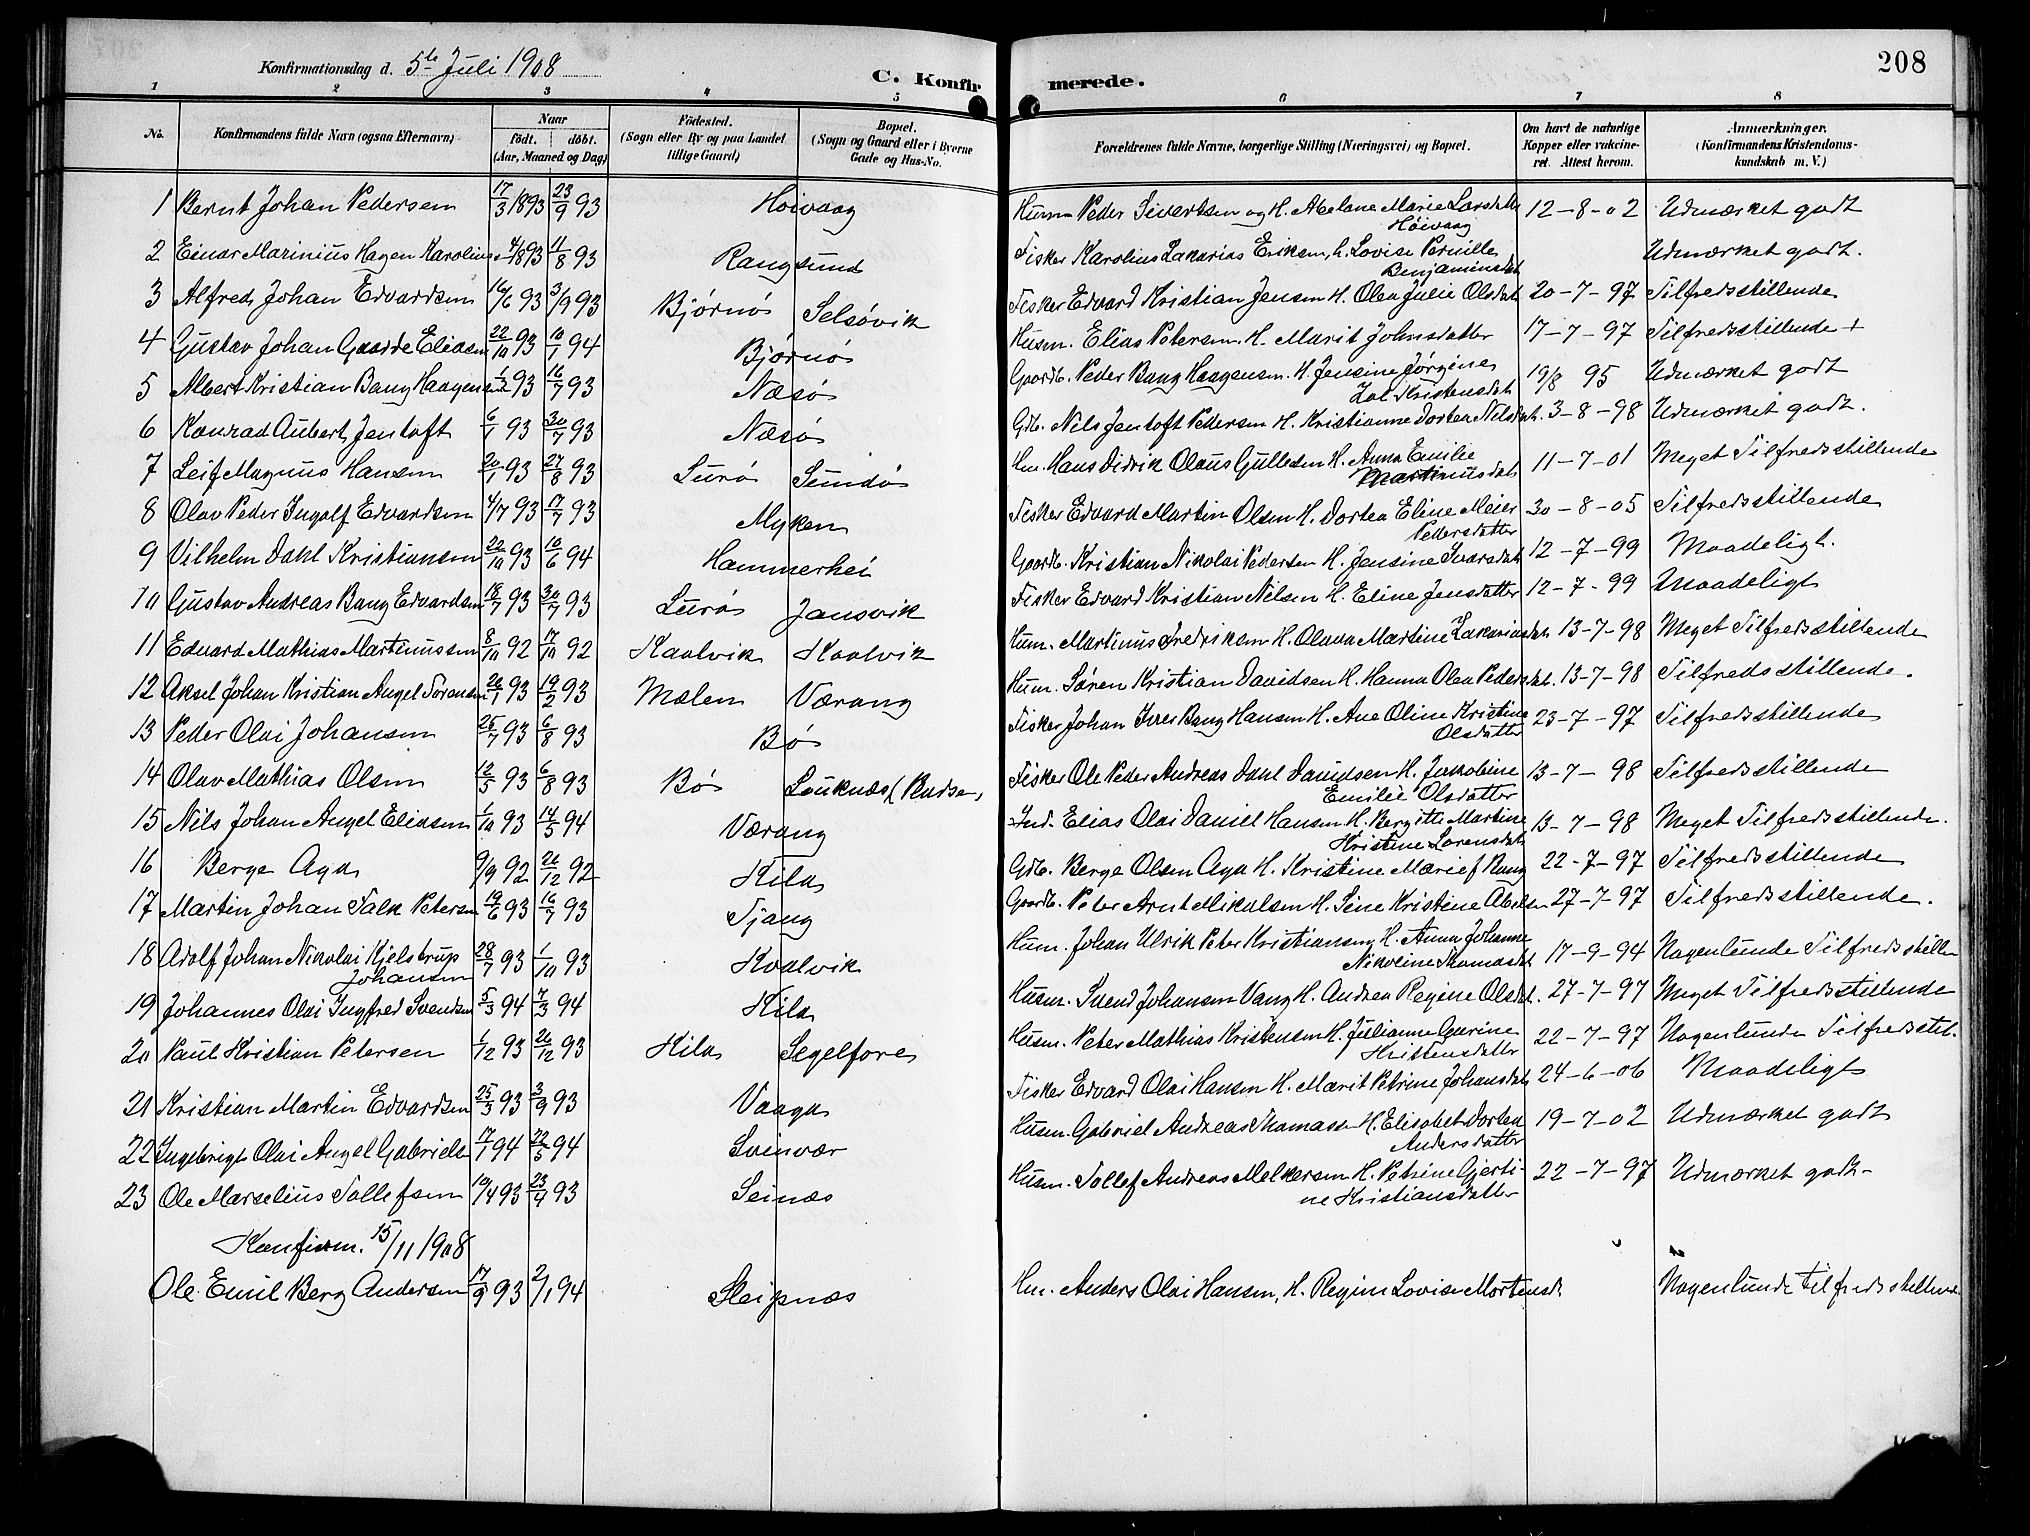 208
Konfirmationsdag d. 5te Juli 1908
C. Konfirmerede.
1 2 3 4 5 6 7 8
No. Konfirmandens fulde Navn (ogsaa Efternavn) Naar født. døbt. (Aar, Maaned og Dag) Fødested. (Sogn eller By og paa Landet tillige Gaard) Bopæl. (Sogn og Gaard eller i Byerne Gade og Hus-No. Forældrenes fulde Navne, borgerlige Stilling (Næringsvei) og Bopæl. Om havt de naturlige Kopper eller vakcineret. Attest herom. Anmærkninger. (Konfirmandens Kristendomskundskab m. V.)
1 Bernt Johan Pedersen 17/3 1893 23/9 93 Høivaag Husm Peder Sivertsen og H. Abelone Marie Larsdatter Høivaag 12-8-02 Udmærket godt
2 Einar Marinius Hagen Karolius 1893 11/8 93 Rangsund Fisker Karolius Zakarias Eriksen, h. Lovise Pernille Benjaminsdat Udmærket godt.
3 Alfred Johan Edvardsen 16/6 93 3/9 93 Bjørnø Selsøvik Fisker Edvard Kristian Jensen H. Olea Julie Olsdat 20-7-97 Tilfredsstillende
4 Gustav Johan Gaarde Eliasen 22/10 93 10/1 94 Bjørnø Husm. Elias Petersen. H. Marit Johnsdatter 17-7-97 Tilfredsstillende +
5 Albert Kristian Bang Haagensen 93 16/7 93 Næsø Gaardb. Peder Bang Haagensen. H. Jensine Jørgine Zal Kristensdat 19/8 95 Udmærket godt
6 Konrad Aubert Jentoft 6/1 93 30/7 93 Næsø Gdb. Nils Jentoft Pedersen H. Kristianne Dortea Nilsdat. 3-8-98 Udmærket godt.
7 Leif Magnus Hansen 20/1 93 27/8 93 Lurø Sundø Hm. Hans Didrik Olaus Gullesen H. Anna Emilie Martinusdat 11-7-01 Meget Tilfredsstillende
8 Olav Peder Ingolf Edvardsen 4/7 93 17/7 93 Myken Fisker Edvard Martin Olsen H. Dortea Eline Meier Pedersdatter 30-8-05 Tilfredsstillende
9 Vilhelm Dahl Kristiansen 22/10 93 10/6 94 Hammerhei Gaardb. Kristian Nikolai Pedersen H. Jensine Ivarsdat 12-7-99 Maadeligt.
10 Gustav Andreas Bang Edvardsen 18/7 93 30/7 93 Lurø Jansvik Fisker Edvard Kristian Nilsen H. Eline Jensdatter 12-7-99 Maadeligt
11 Edvard Mathias Martinussen 8/10 92 17/10 92 Kaalvik Kaalvik Husm. Martinus Fredriksen H. Olava Martine Zakariasdat. 13-7-98 Meget Tilfredsstillende
12 Aksel Johan Kristian Angel Sørensen 26/1 93 19/2 93 Mælen Værang Husm. Søren Kristian Davidsen H. Hanna Olea Pedersdat. 13-7-98 Tilfredsstillende.
13 Peder Olai Johansen 25/7 93 6/8 93 Bø Fisker Johan Iver Bang Hansen H. Ane Oline Kristine Olsdatter 23-7-97 Tilfredsstillende
14 Olav Mathias Olsen 12/5 93 6/8 93 Bø Fisker Ole Peder Andreas Dahl Davidsen H. Jakobine Emilie Olsdatter 13-7-98 Tilfredsstillende
15 Nils Johan Angel Eliasen 1/10 93 14/5 94 Værang Ind. Elias Olai Daniel Hansen H. Bergitte Martine Kristine Lorensdat 13-7-98 Meget Tilfredsstillende.
16 Berge Aga 9/9 92 26/12 92 Kila Gdb. Berge Olsen Aga H. Kristine Marie f. Bang 22-7-97 Tilfredsstillende
17 Martin Johan Falk Petersen 19/6 93 16/7 93 Tjang Gaardb. Peter Arnt Mikalsen H. Sine Kristine Abelsen 27-7-97 Tilfredsstillende.
18 Adolf Johan Nicolai Kjelstrup Johansen 28/7 93 1/10 93 Kvalvik Husm. Johan Ulrik Peter Kristiansen H. Anna Johanne Nikoline Thomasdat 17-9-94 Nogenlunde Tilfredsstillen
19 Johannes Olai Ingfred Svendsen 5/3 94 7/3 94 Kila Husm. Svend Johansen Vang H. Andrea Regine Olsdat. 27-7-97 Meget Tilfredsstillende
20 Paul Kristian Petersen 1/12 93 26/12 93 Kila Segelfore Husm. Peter Mathias Kristensen H. Julianne Gurine Kristensdatter 22-7-97 Nogenlunde Tilfredsstil.
21 Kristian Martin Edvardsen 25/3 93 3/9 93 Vaaga Fisker Edvard Olai Hansen H. Marit Petrine Johansdat 24-6-06 Maadeligt
22 Ingebrigt Olai Angel Gabriels 17/1 94 22/5 94 Svinvær Husm. Gabriel Andreas Thomassen H. Elisabet Dortea Andersdatter 19-7-02 Udmærket godt
23 Ole Marselius Tollefsen 10/4 93 23/4 93 Seinæs Husm. Tollef Andreas Melkersen H. Petrine Gjertine Kristiansdatter 22-7-97 Udmærket godt-
Konfirm. 15/11 1908
Ole Emil Berg Andersen 17/9 93 2/1 94 Sleipnæs Hm. Anders Olai Hansen, H. Regine Lovise Mortensd. Nogenlunde tilfredsstillende